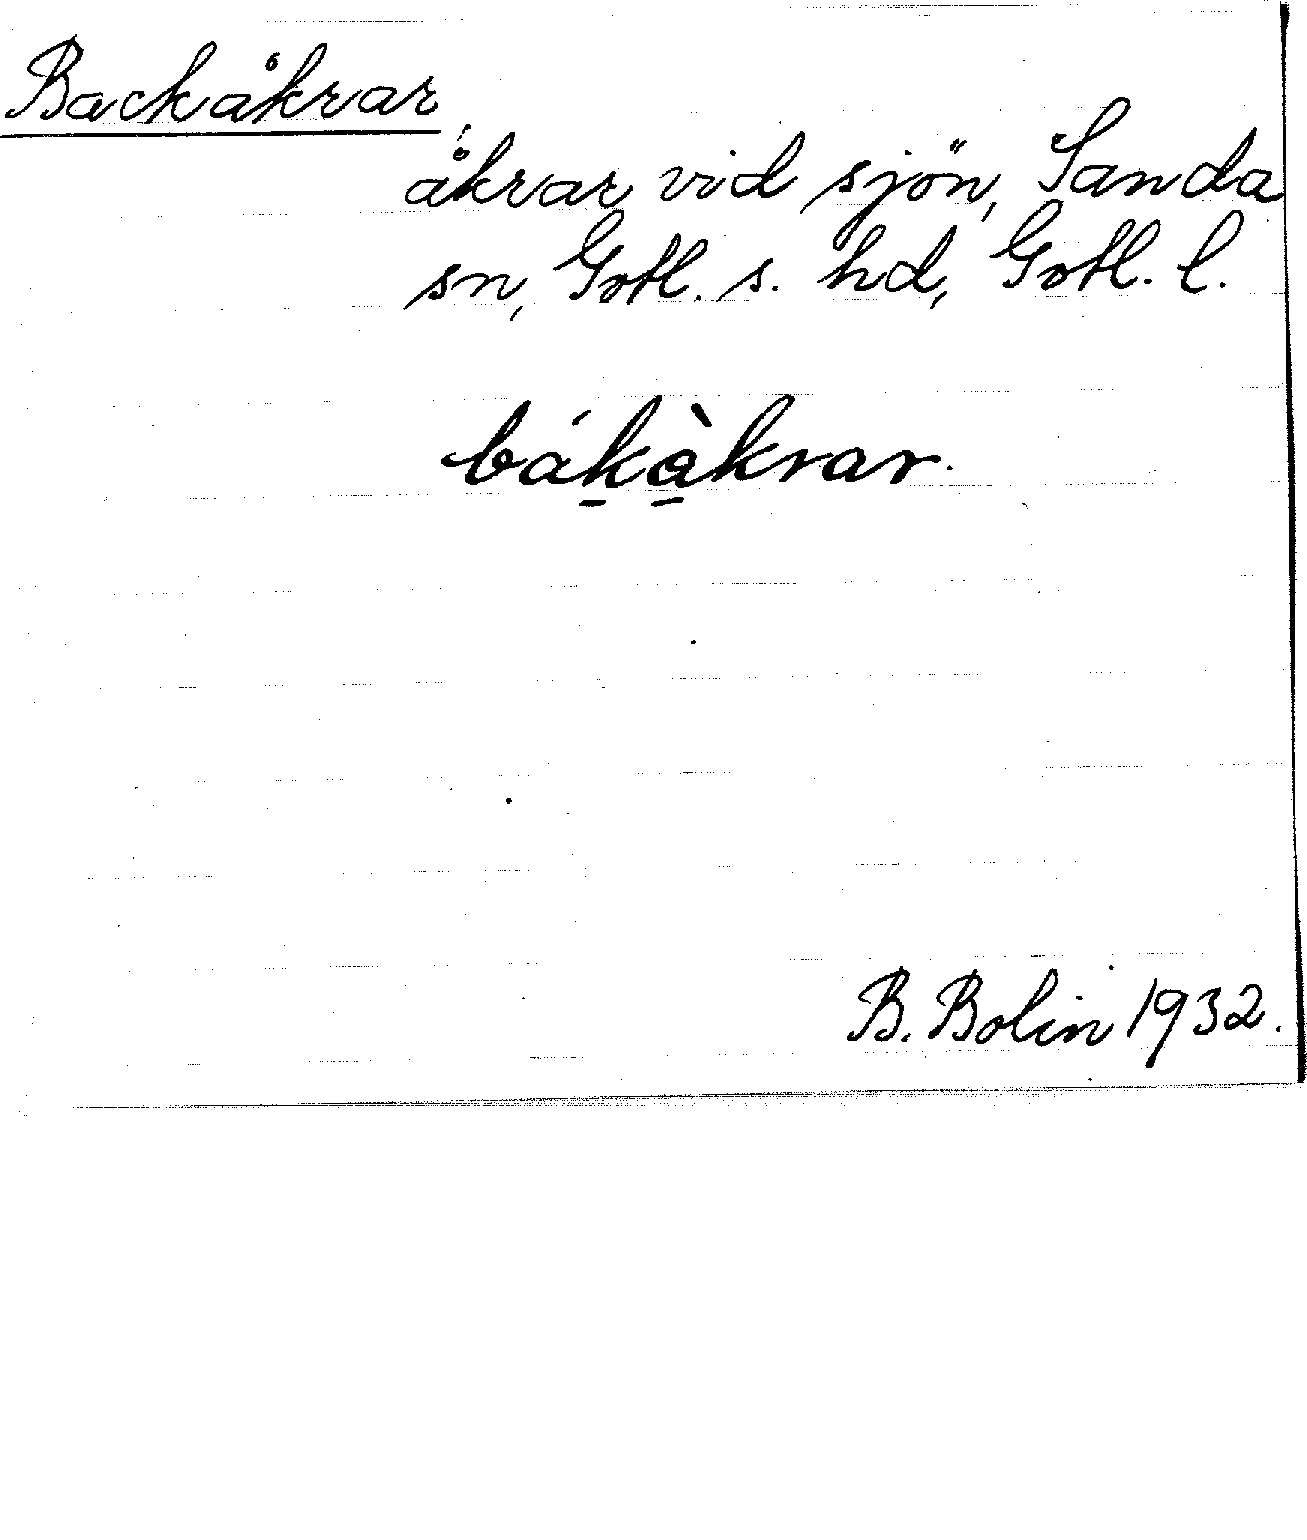 Backåkrar,
åkrar vid sjön, Sanda
sn, Gotl. s. hd, Gotl. l.
bák̠à̠krar.
B. Bolin 1932.